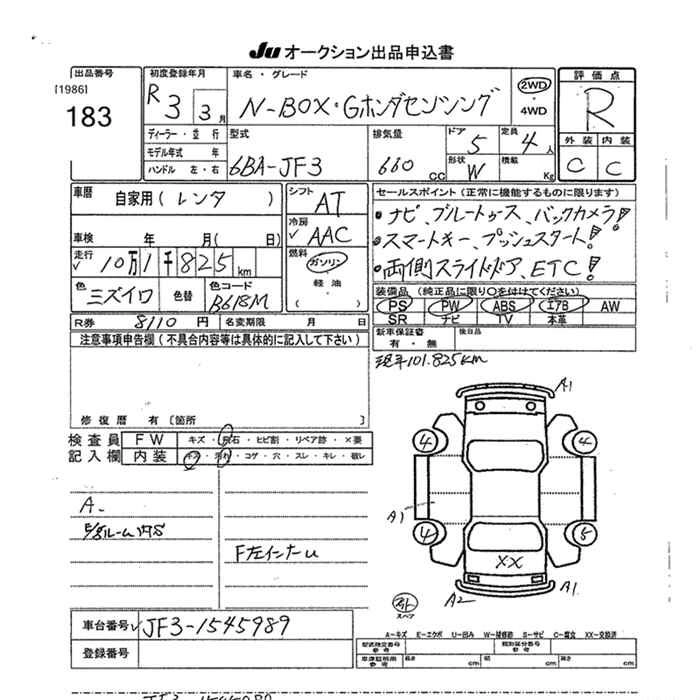 Ju オークション出品申込書
出品番号
[1986]
183
初度登録年月
R 3 年 3 月
車名・グレード
N-BOX・Gホンダセンシング
2WD
4WD
評価点
R
外装 内装
C C
ディーラー・並行
モデル年式 年
ハンドル 左・右
型式
6BA-JF3
排気量
660 CC
ドア 5
形状 W
定員 4 人
積載 Kg
車歴
自家用(レンタ )
車検 年 月( 日)
走行
10万1千825 km
色
ミズイロ
色替
色コード
B618M
シフト
AT
冷房
AAC
燃料
ガソリン
軽油
( )
セールスポイント(正常に機能するものに限ります)
・ナビ、ブルートゥース、バックカメラ!
・スマートキー、プッシュスタート!
・両側スライドドア、ETC!
装備品(純正品に限り○を付けてください)
PS PW ABS エアB AW
SR ナビ TV 本革
新車保証書
有・無
後日品
R券 8110 円
名変期限 月 日
注意事項申告欄(不具合内容等は具体的に記入して下さい)
現車101.825km
修復歴 有〔箇所 〕
検査員
記入欄
FW キズ・飛石・ヒビ割・リペア跡・×要
内装 キズ・汚れ・コゲ・穴・スレ・キレ・破レ
A1
4 4
A1
4 5
XX
A2 A1
外
スペア
A-
F左インナー
車台番号 JF3-1545989
登録番号
A-キズ E-エクボ U-凹み W-補修跡 S-サビ C-腐食 XX-交換済
型式指定番号
類別区分番号
長さ cm 幅 cm 高さ cm